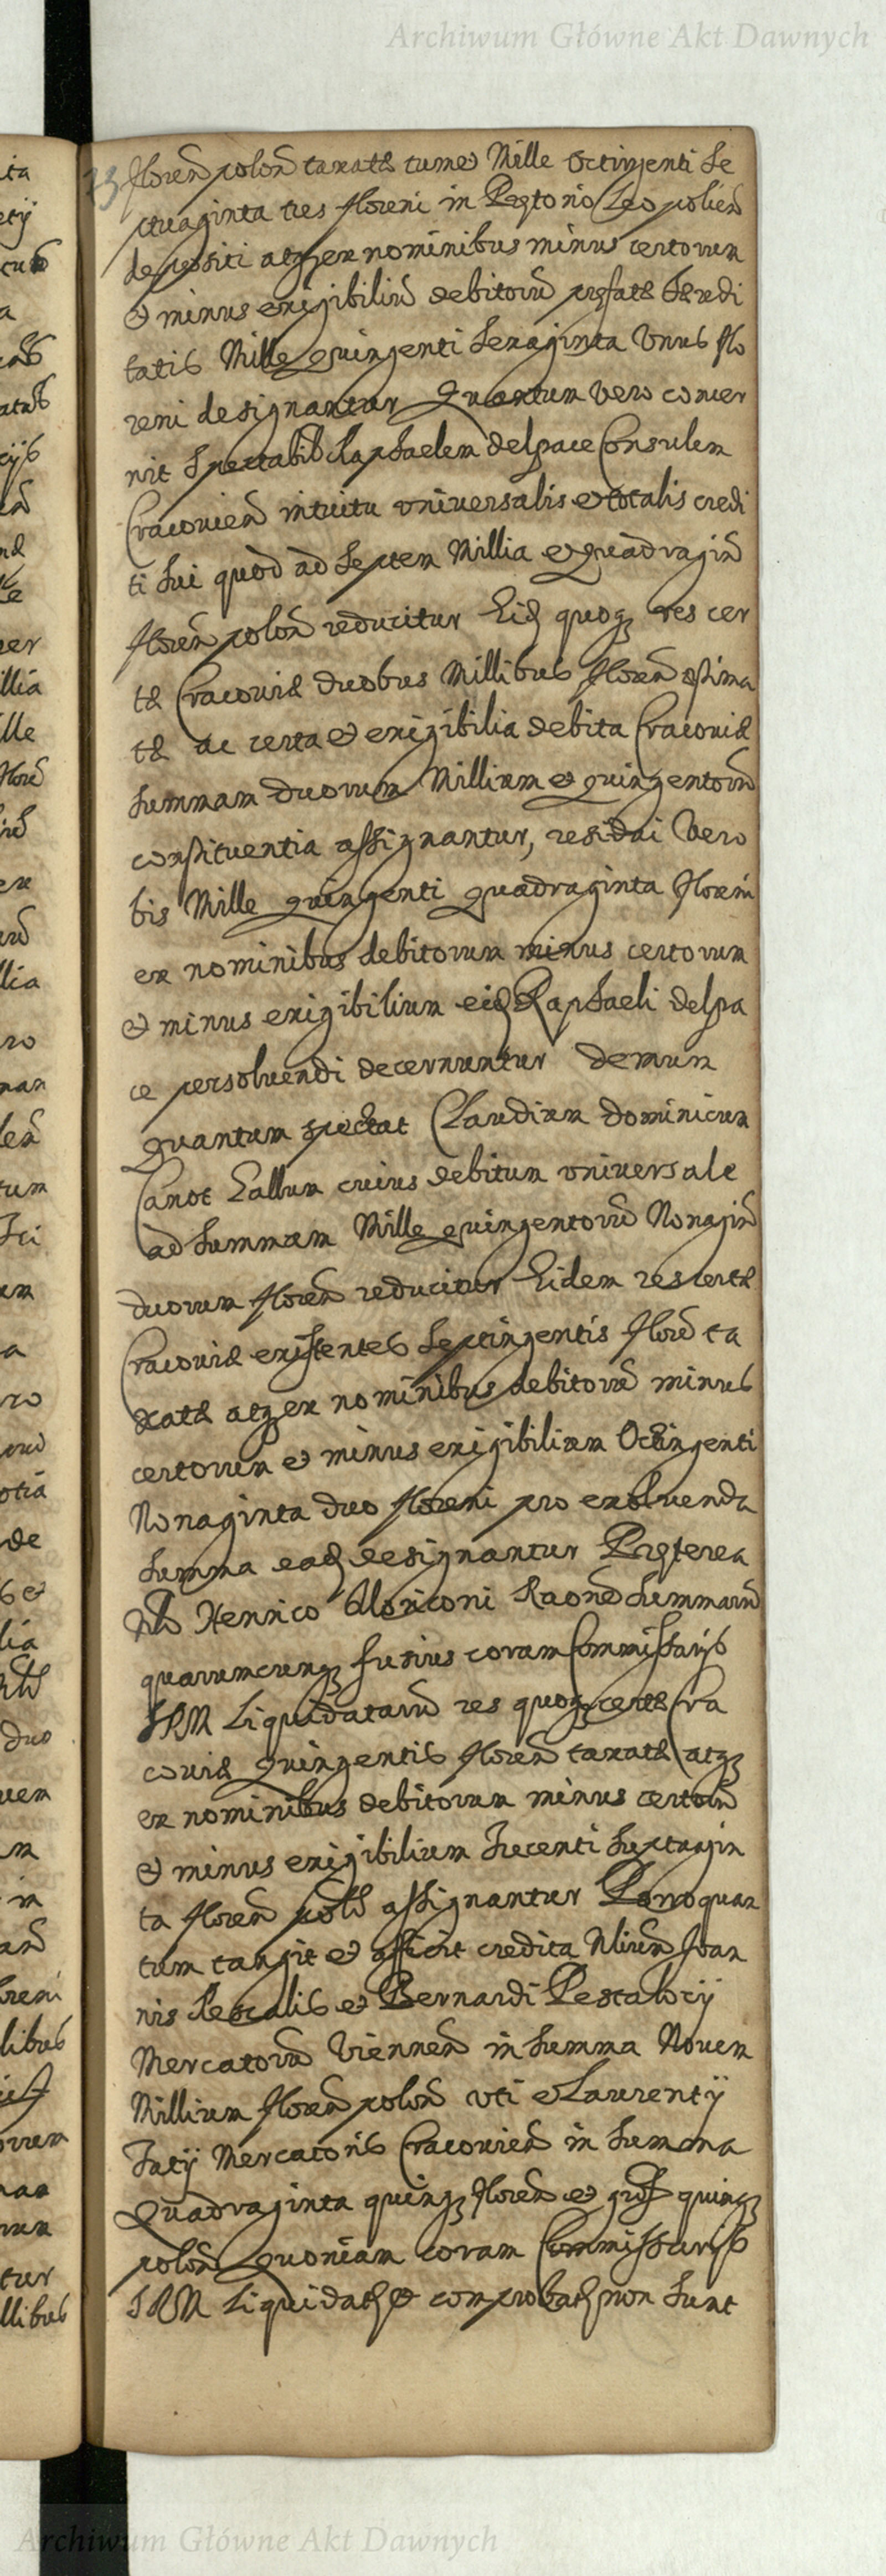 Archiwum Główne Akt Dawnych
floren polon taxatæ tum et Mille Octingenti Se
ptuaginta tres floreni in Prætorio Leopolien
depositi atq ex nominibus minus certorum
et minus exigibiliu debitoru præfatæ Hæredi
tatis Mille quingenti Sexaginta Unus flo
reni designantur Quantum vero concer
nit Spectabil Raphaelem delpace Consulem
Cracovien intuitu universalis et totalis credi
ti sui quod ad Septem Millia et quadragin
floren polon reducitur Eid quoq res cer
tæ Cracoviæ duobus Millibus floren æstima
tæ ac certa et exigibilia debita Cracoviæ
Summam duorum Millium et quingentoru
constituentia assignantur, residui Vero
bis Mille quingenti quadraginta floreni
ex nominibus debitorum minus certorum
et minus exigibilium eid Raphaeli delpa
ce persolvendi decernuntur demum
quantum spectat Claudium Dominicum
Canot Gallum cuius debitum universale
ad Summam Mille quingentoru Nonagin
duorum floren reducitur Eidem res certæ
Cracoviæ existentes Septingentis flore ta
xatæ atq ex nominibus debitoru minus
certorum et minus exigibilium Octingenti
Nonaginta duo floreni pro exolvenda
Summa ead designantur Præterea
Henrico Moriconi Raone Summaru
quarumcunq fusius coram Commissarijs
SRM Liquidataru res quoq certæ Cra
coviæ quingentis floren taxatæ atq
ex nominibus debitorum minus certoru
et minus exigibilium Trecenti Septuagin
ta floren pol assignantur Porro quan
tum tangit et afficit credita Joan
nis Pestalis et Bernardi Pestalocij
Mercatoru Viennen in Summa Novem
Millium floren polon uti et Laurentij
Mercatoris Cracovien in Summa
Quadraginta quinq floren et gros quinq
polon quoniam coram Commissarijs
SRM Liquidatæ et comprobatæ non Sunt
Archiwum Główne Akt Dawnych